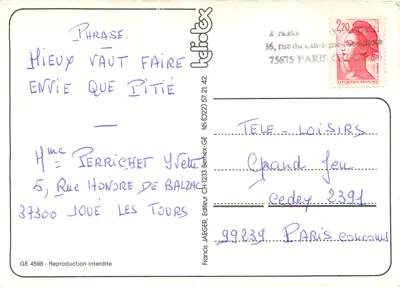 PHRASE.
MIEUX VAUT FAIRE
ENVIE QUE PITIÉ
Mme PERRICHET Yvette
5, Rue HONORE DE BALZAC
37300 JOUÉ LES TOURS
GE 4598 - Reproduction interdite
Francis JAEGER, Editeur CH-1233 Bernex-GE Tél. (022) 57.21.42.
2,20
75675 PARIS
TELE - LOISIRS
Grand Jeu
Cedex 2391
99239 PARIS CONCOURS